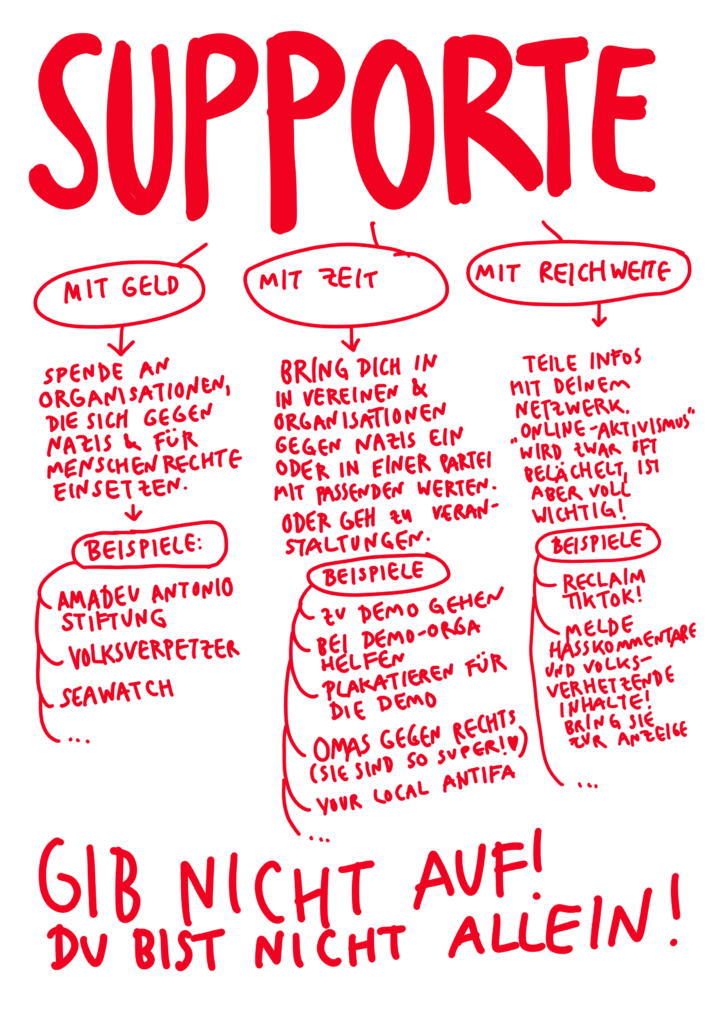 SUPPORTE
MIT GELD
SPENDE AN
ORGANISATIONEN,
DIE SICH GEGEN
NAZIS & FÜR
MENSCHENRECHTE
EINSETZEN.
BEISPIELE:
AMADEU ANTONIO
STIFTUNG
VOLKSVERPETZER
SEAWATCH
...
MIT ZEIT
BRING DICH IN
IN VEREINEN &
ORGANISATIONEN
GEGEN NAZIS EIN
ODER IN EINER PARTEI
MIT PASSENDEN WERTEN.
ODER GEH ZU VERAN-
STALTUNGEN.
BEISPIELE
ZU DEMO GEHEN
BEI DEMO-ORGA
HELFEN
PLAKATIEREN FÜR
DIE DEMO
OMAS GEGEN RECHTS
(SIE SIND SO SUPER!♥)
YOUR LOCAL ANTIFA
...
MIT REICHWEITE
TEILE INFOS
MIT DEINEM
NETZWERK.
„ONLINE-AKTIVISMUS"
WIRD ZWAR OFT
BELÄCHELT, IST
ABER VOLL
WICHTIG!
BEISPIELE
RECLAIM
TIKTOK!
MELDE
HASSKOMMENTARE
UND VOLKS-
VERHETZENDE
INHALTE!
BRING SIE
ZUR ANZEIGE
...
GIB NICHT AUF!
DU BIST NICHT ALLEIN!